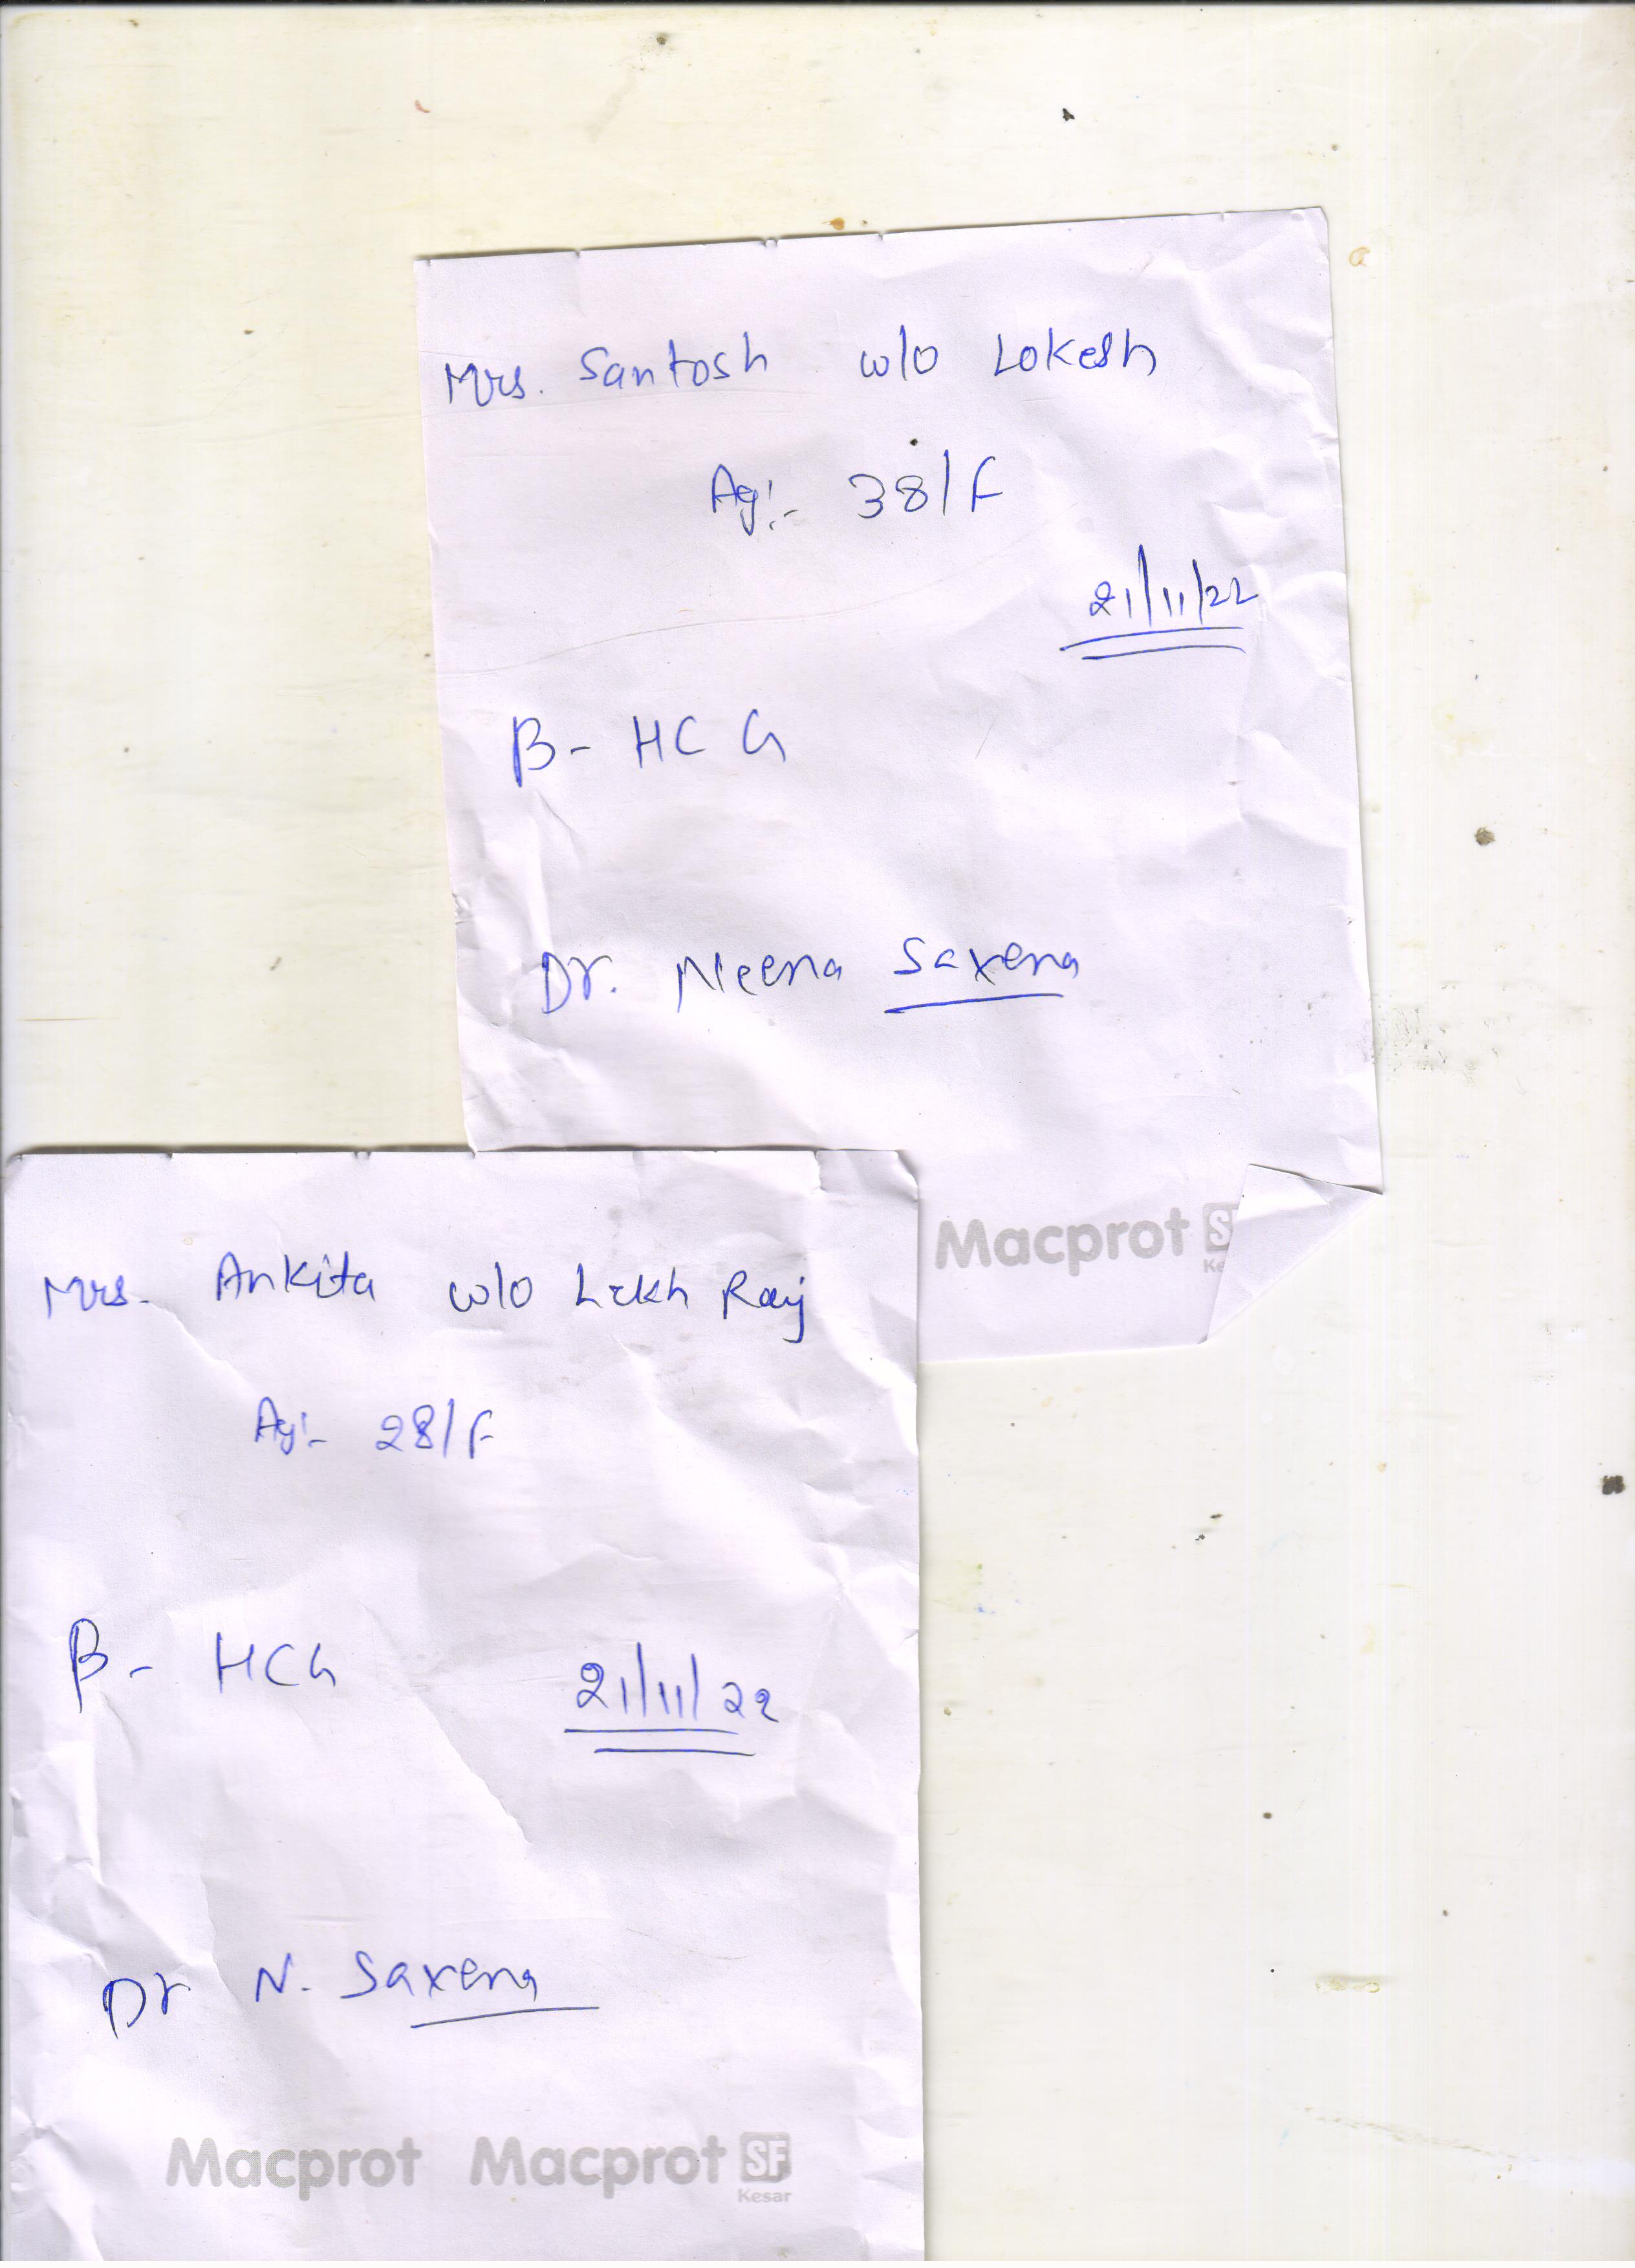 Mrs. Santosh w/o Lokesh
Ag:- 38/F
21/11/22
β- HCG
Dr. Neena Saxena
Macprot
Mrs. Ankita w/o Lekh Raj
Ag:- 28/F
β- HCG 21/11/22
Dr N. Saxena
Macprot Macprot SF
Kesar